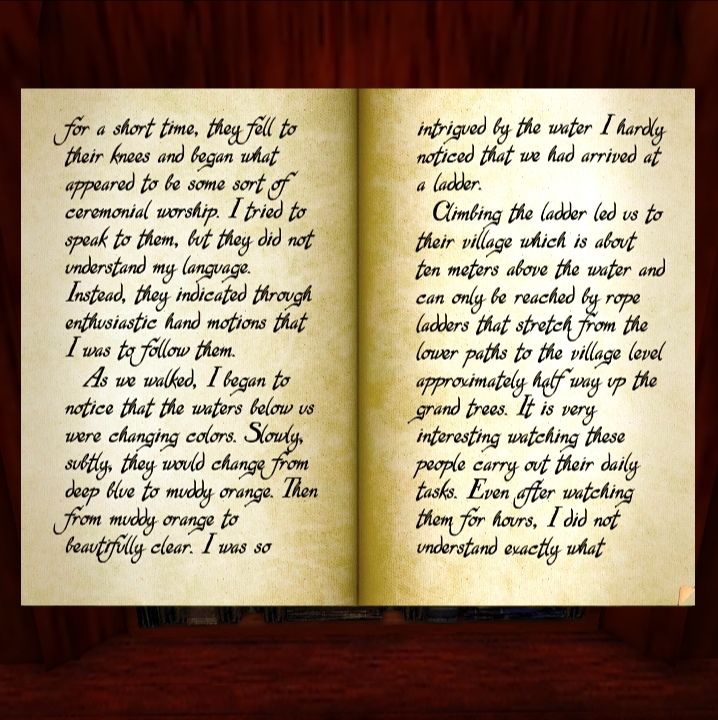 for a short time, they fell to
their knees and began what
appeared to be some sort of
ceremonial worship. I tried to
speak to them, but they did not
understand my language.
Instead, they indicated through
enthusiastic hand motions that
I was to follow them.
As we walked, I began to
notice that the waters below us
were changing colors. Slowly,
subtly, they would change from
deep blue to muddy orange. Then
from muddy orange to
beautifully clear. I was so
intrigued by the water I hardly
noticed that we had arrived at
a ladder.
Climbing the ladder led us to
their village which is about
ten meters above the water and
can only be reached by rope
ladders that stretch from the
lower paths to the village level
approximately half way up the
grand trees. It is very
interesting watching these
people carry out their daily
tasks. Even after watching
them for hours, I did not
understand exactly what